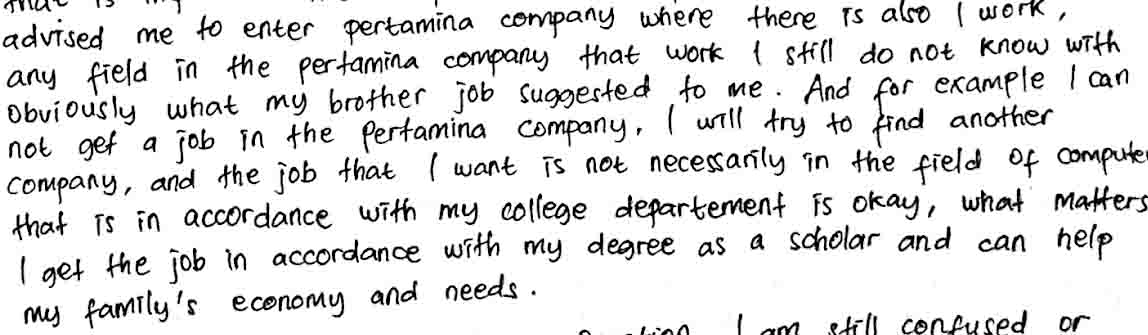 that is my
advised me to enter pertamina company where there is also I work,
any field in the pertamina company that work I still do not know with
obviously what my brother job suggested to me. And for example I can
not get a job in the Pertamina company, I will try to find another
company, and the job that I want is not necessarily in the field of compute
that is in accordance with my college departement is okay, what matters
I get the job in accordance with my degree as a scholar and can help
my family's economy and needs.
I am still confused or